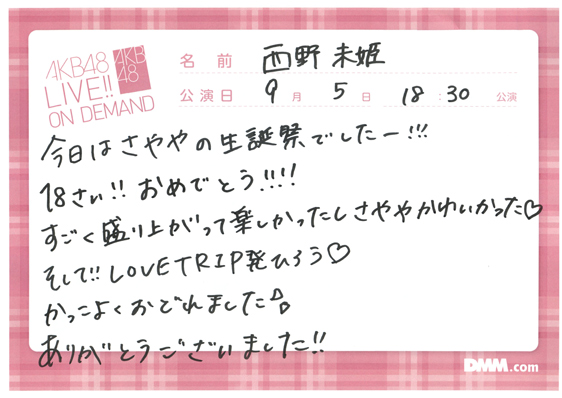 AKB48
LIVE!!
ON DEMAND
AKB
48
名前 西野未姫
公演日 9月 5日 18:30 公演
今日はさややの生誕祭でしたー!!!
18さい!! おめでとう!!!!
すごく盛り上がって楽しかったしさややかわいかった♡
そして!! LOVETRIP発ひろう♡
かっこよくおどれました♪
ありがとうございました!!
DMM.com